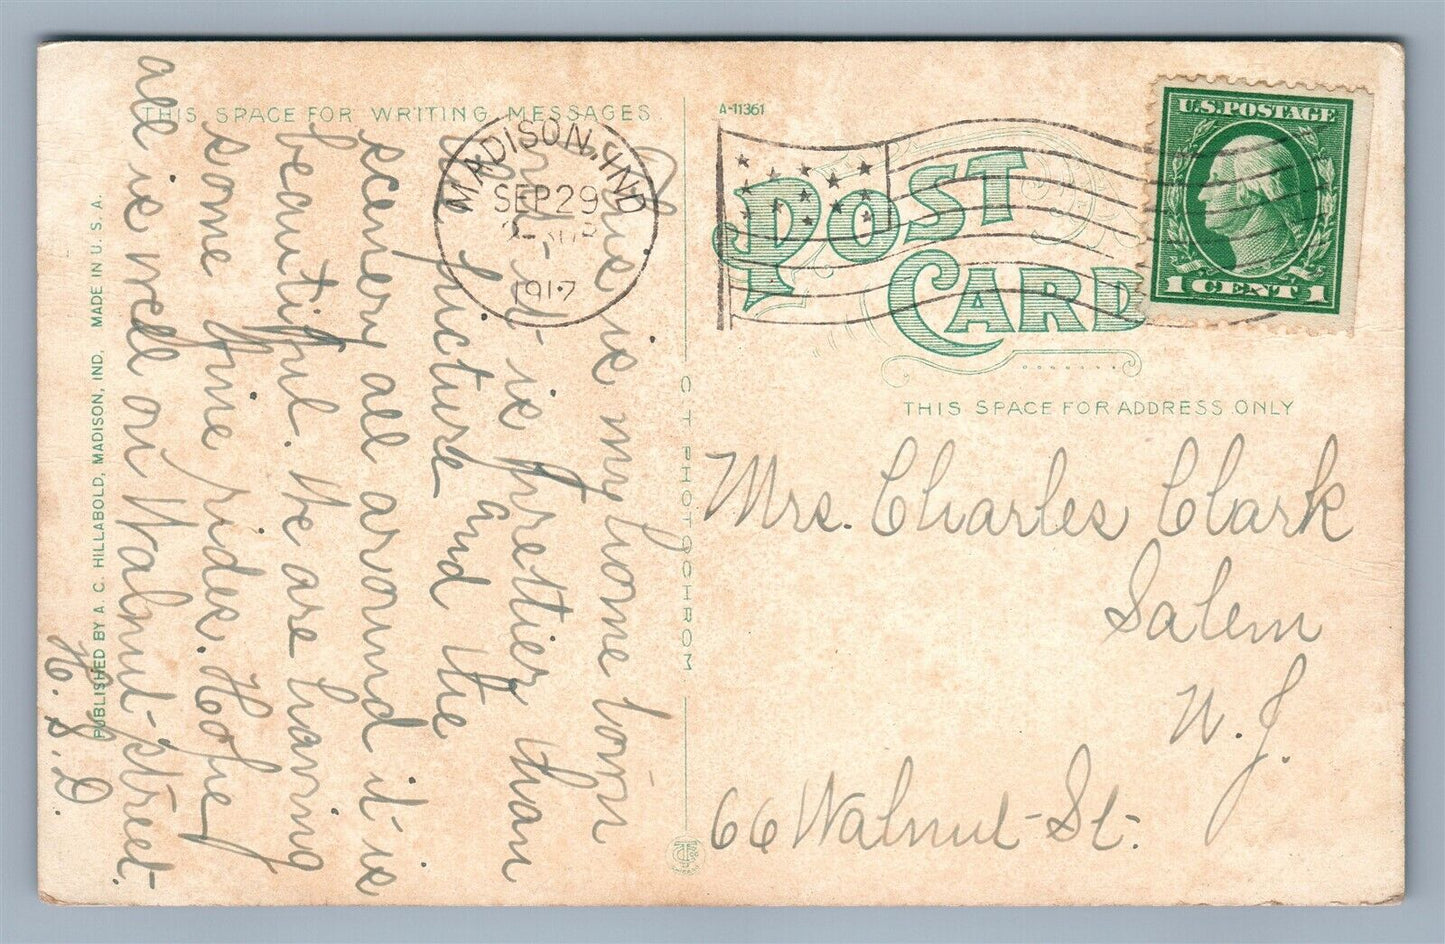 THIS SPACE FOR WRITING MESSAGES.
A-11361
U.S. POSTAGE
1 CENT 1
MADISON, IND.
SEP 29
1917
POST
CARD
THIS SPACE FOR ADDRESS ONLY
This is my home town
and it is prettier than
the picture and the
scenery all around it is
beautiful. We are having
some fine rides. Hope
all is well on Walnut street.
H. S. D.
Mrs. Charles Clark
Salem
N. J.
66 Walnut St.
C T PHOTOCHROM
PUBLISHED BY A. C. HILLABOLD, MADISON, IND. MADE IN U. S. A.